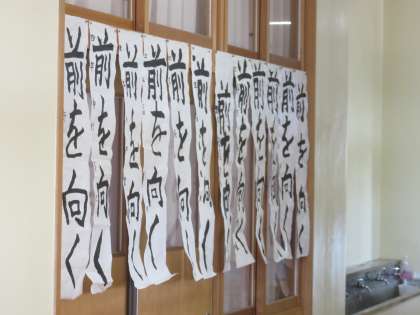 前を向く
前を向く
前を向く
前を向く
前を向く
前を向く
前を向く
前を向く
前を向く
前を向く
前を向く
前を向く